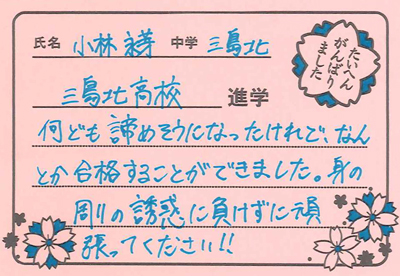 氏名 小林 中学 三島北
たいへん
がんばり
ました
三島北高校 進学
何ども諦めそうになったけれで、なん
とか合格することができました。身の
周りの誘惑に負けずに頑
張ってください!!